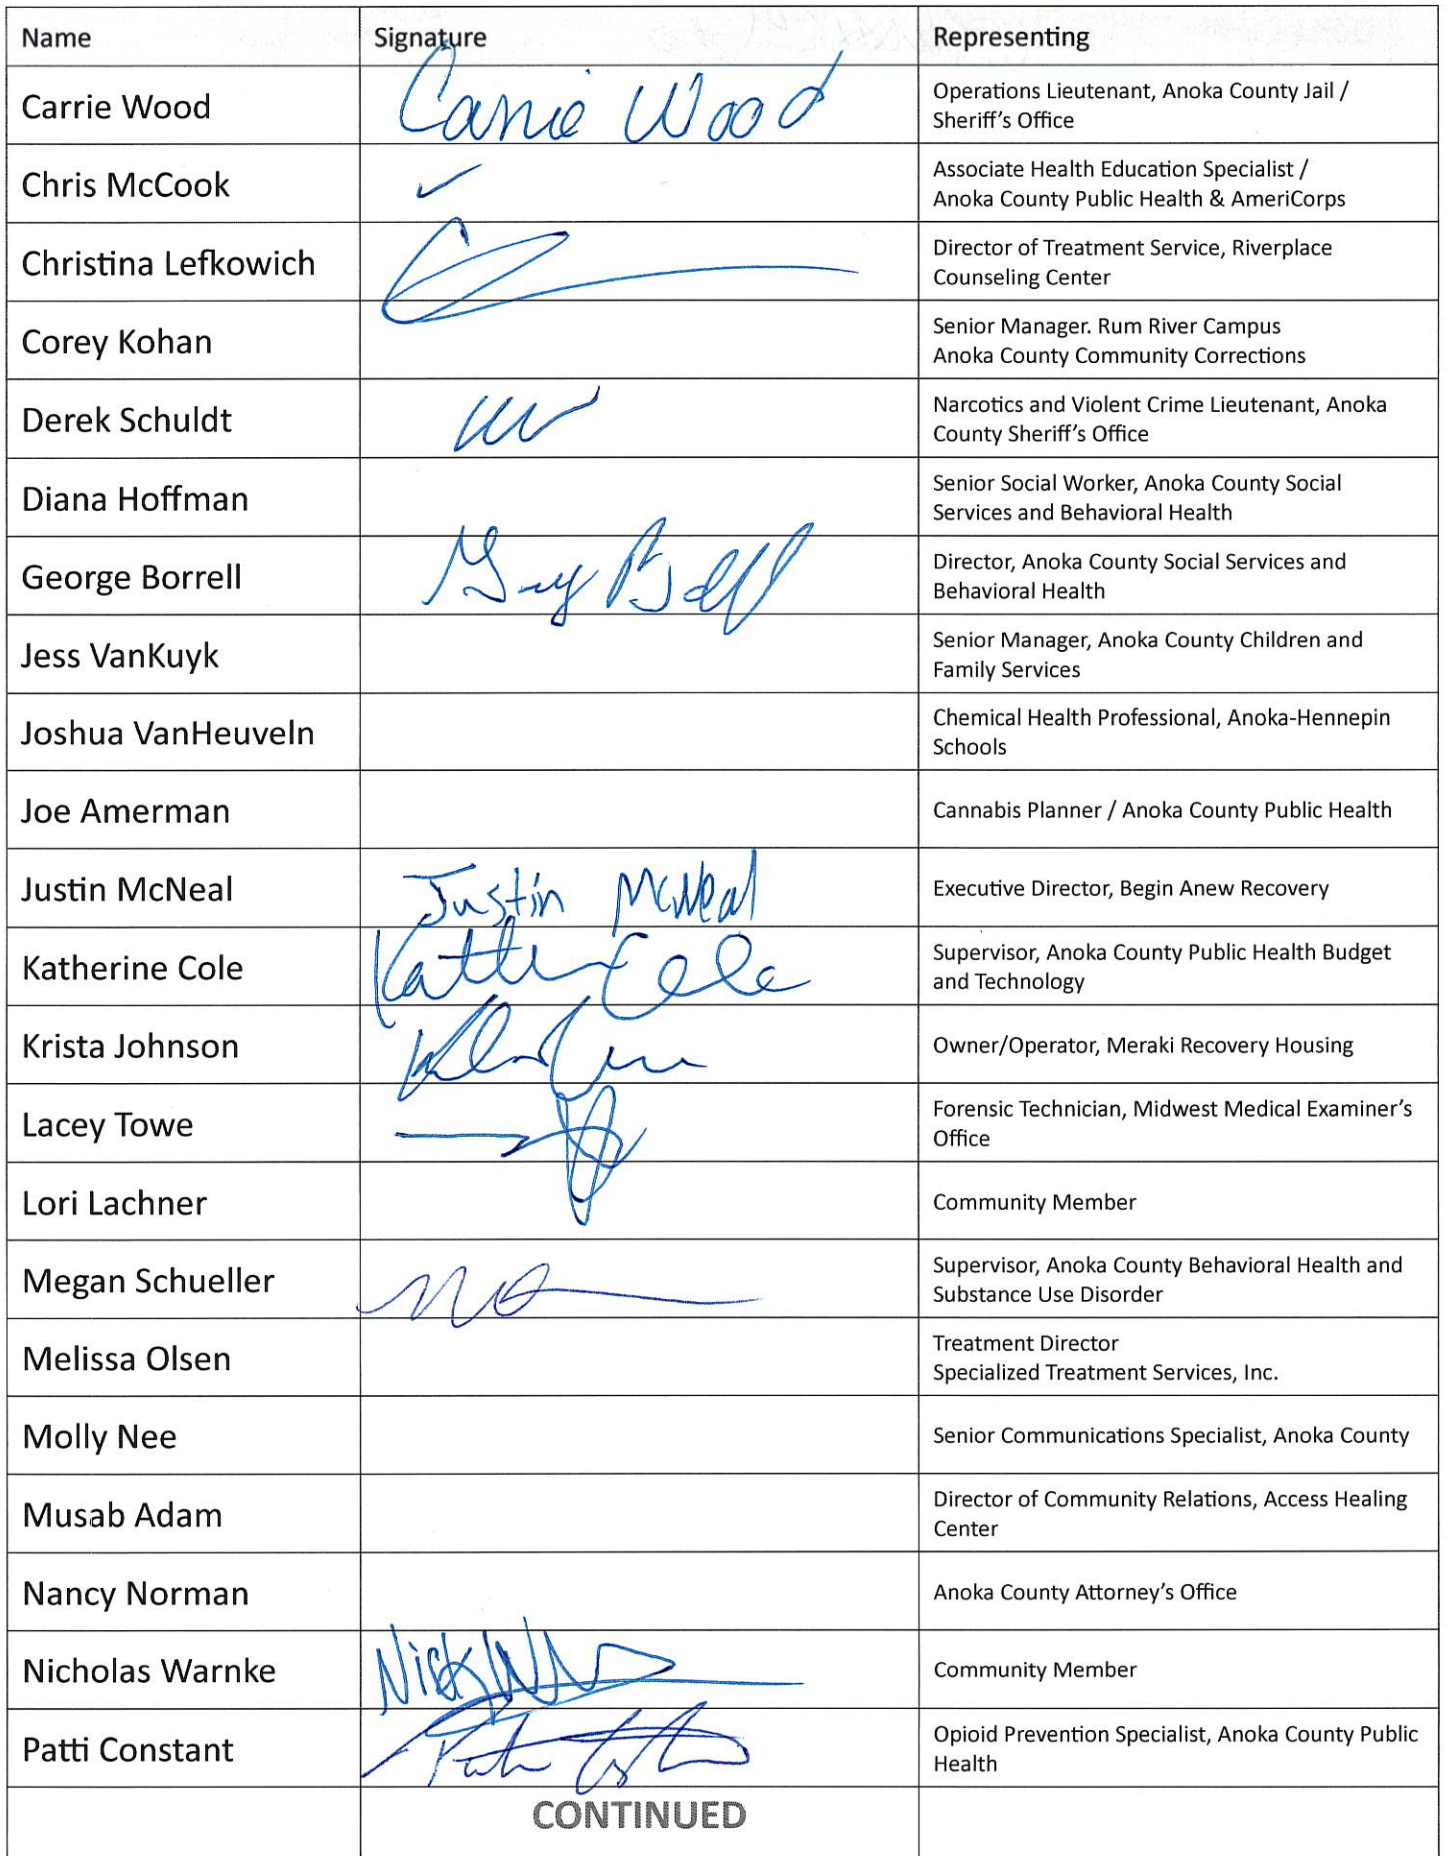 Name Signature Representing
Carrie Wood Carrie Wood Operations Lieutenant, Anoka County Jail /
Sheriff's Office
Chris McCook ✓ Associate Health Education Specialist /
Anoka County Public Health & AmeriCorps
Christina Lefkowich Director of Treatment Service, Riverplace
Counseling Center
Corey Kohan Senior Manager. Rum River Campus
Anoka County Community Corrections
Derek Schuldt Narcotics and Violent Crime Lieutenant, Anoka
County Sheriff's Office
Diana Hoffman Senior Social Worker, Anoka County Social
Services and Behavioral Health
George Borrell Director, Anoka County Social Services and
Behavioral Health
Jess VanKuyk Senior Manager, Anoka County Children and
Family Services
Joshua VanHeuveln Chemical Health Professional, Anoka-Hennepin
Schools
Joe Amerman Cannabis Planner / Anoka County Public Health
Justin McNeal Justin McNeal Executive Director, Begin Anew Recovery
Katherine Cole Supervisor, Anoka County Public Health Budget
and Technology
Krista Johnson Owner/Operator, Meraki Recovery Housing
Lacey Towe Forensic Technician, Midwest Medical Examiner's
Office
Lori Lachner Community Member
Megan Schueller Supervisor, Anoka County Behavioral Health and
Substance Use Disorder
Melissa Olsen Treatment Director
Specialized Treatment Services, Inc.
Molly Nee Senior Communications Specialist, Anoka County
Musab Adam Director of Community Relations, Access Healing
Center
Nancy Norman Anoka County Attorney's Office
Nicholas Warnke Nick Community Member
Patti Constant Opioid Prevention Specialist, Anoka County Public
Health
CONTINUED